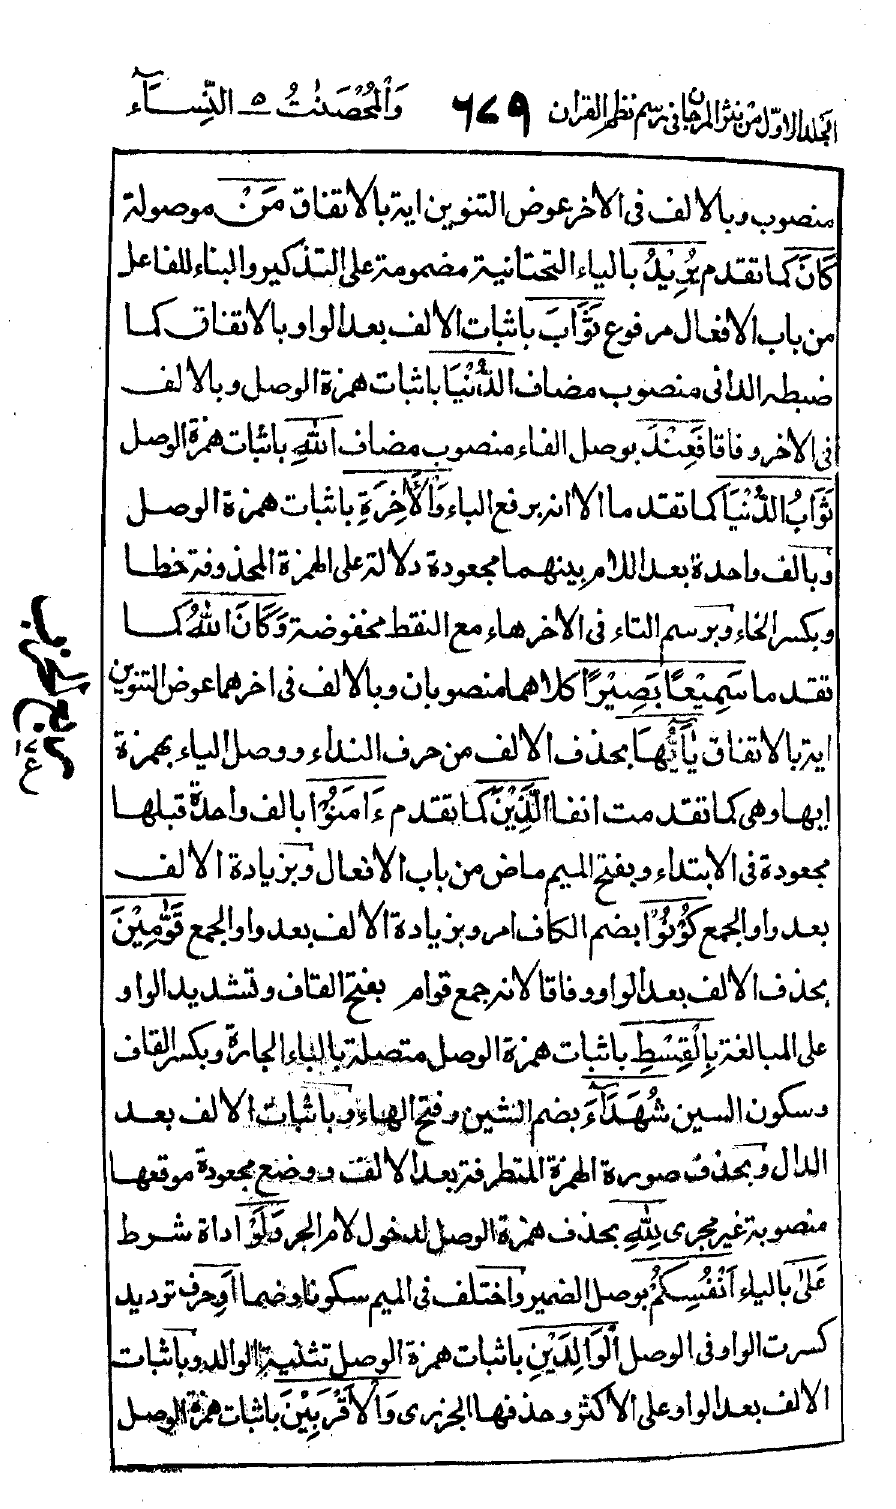 المجلد الاول من نثر المرجان فى رسم نظم القران ٦٧٩ وَالْمُحْصَنٰتُ ٥ النِّسَآء
منصوب وبالالف فى الاخر عوض التنوين اية بالاتفاق مَنْ موصولة
كَانَ كما تقدم يُرِيْدُ بالياء التحتانية مضمومة على التذكير والبناء للفاعل
من باب الافعال مرفوع ثَوَابَ باثبات الالف بعد الواو بالاتفاق كما
ضبطه الدانى منصوب مضاف الدُّنْيَا باثبات همزة الوصل وبالالف
فى الاخر وفاقا فَعِنْدَ بوصل الفاء منصوب مضاف اللّٰهِ باثبات همزة الوصل
ثَوَابُ الدُّنْيَا كما تقدما الا انه برفع الباء وَالْاٰخِرَةِ باثبات همزة الوصل
وبالف واحدة بعد اللام بينهما مجعودة دلالة على الهمزة المحذوفة خطا
وبكسر الخاء وبرسم التاء فى الاخر هاء مع النقط مخفوضة وَكَانَ اللّٰهُ كما
تقدما سَمِيْعًا بَصِيْرًا كلاهما منصوبان وبالالف فى اخرهما عوض التنوين
اية بالاتفاق يٰٓاَيُّهَا بحذف الالف من حرف النداء ووصل الياء بهمزة
ايها وهى كما تقدمت انفا الَّذِيْنَ كما تقدم ءَامَنُوْا بالف واحدة قبلها
مجعودة فى الابتداء وبفتح الميم ماض من باب الافعال وبزيادة الالف
بعد واو الجمع كُوْنُوْا بضم الكاف امر وبزيادة الالف بعد واو الجمع قَوّٰمِيْنَ
بحذف الالف بعد الواو وفاقا لانه جمع قوام بفتح القاف وتشديد الواو
على المبالغة بِالْقِسْطِ باثبات همزة الوصل متصلة بالباء الجارة وبكسر القاف
وسكون السين شُهَدَآءَ بضم الشين وفتح الهاء وباثبات الالف بعد
الدال وبحذف صورة الهمزة المتطرفة بعد الالف ووضع مجعودة موقعها
منصوبة غير مجرى لِلّٰهِ بحذف همزة الوصل لدخول لام الجر وَلَوْ اداة شرط
عَلٰٓى بالياء اَنْفُسِكُمْ بوصل الضمير واختلف فى الميم سكونا وضما اَوِ حرف ترديد
كسرت الواو فى الوصل الْوَالِدَيْنِ باثبات همزة الوصل تثنية الوالد وباثبات
الالف بعد الواو على الاكثر وحذفها الجزرى وَالْاَقْرَبِيْنَ باثبات همزة الوصل